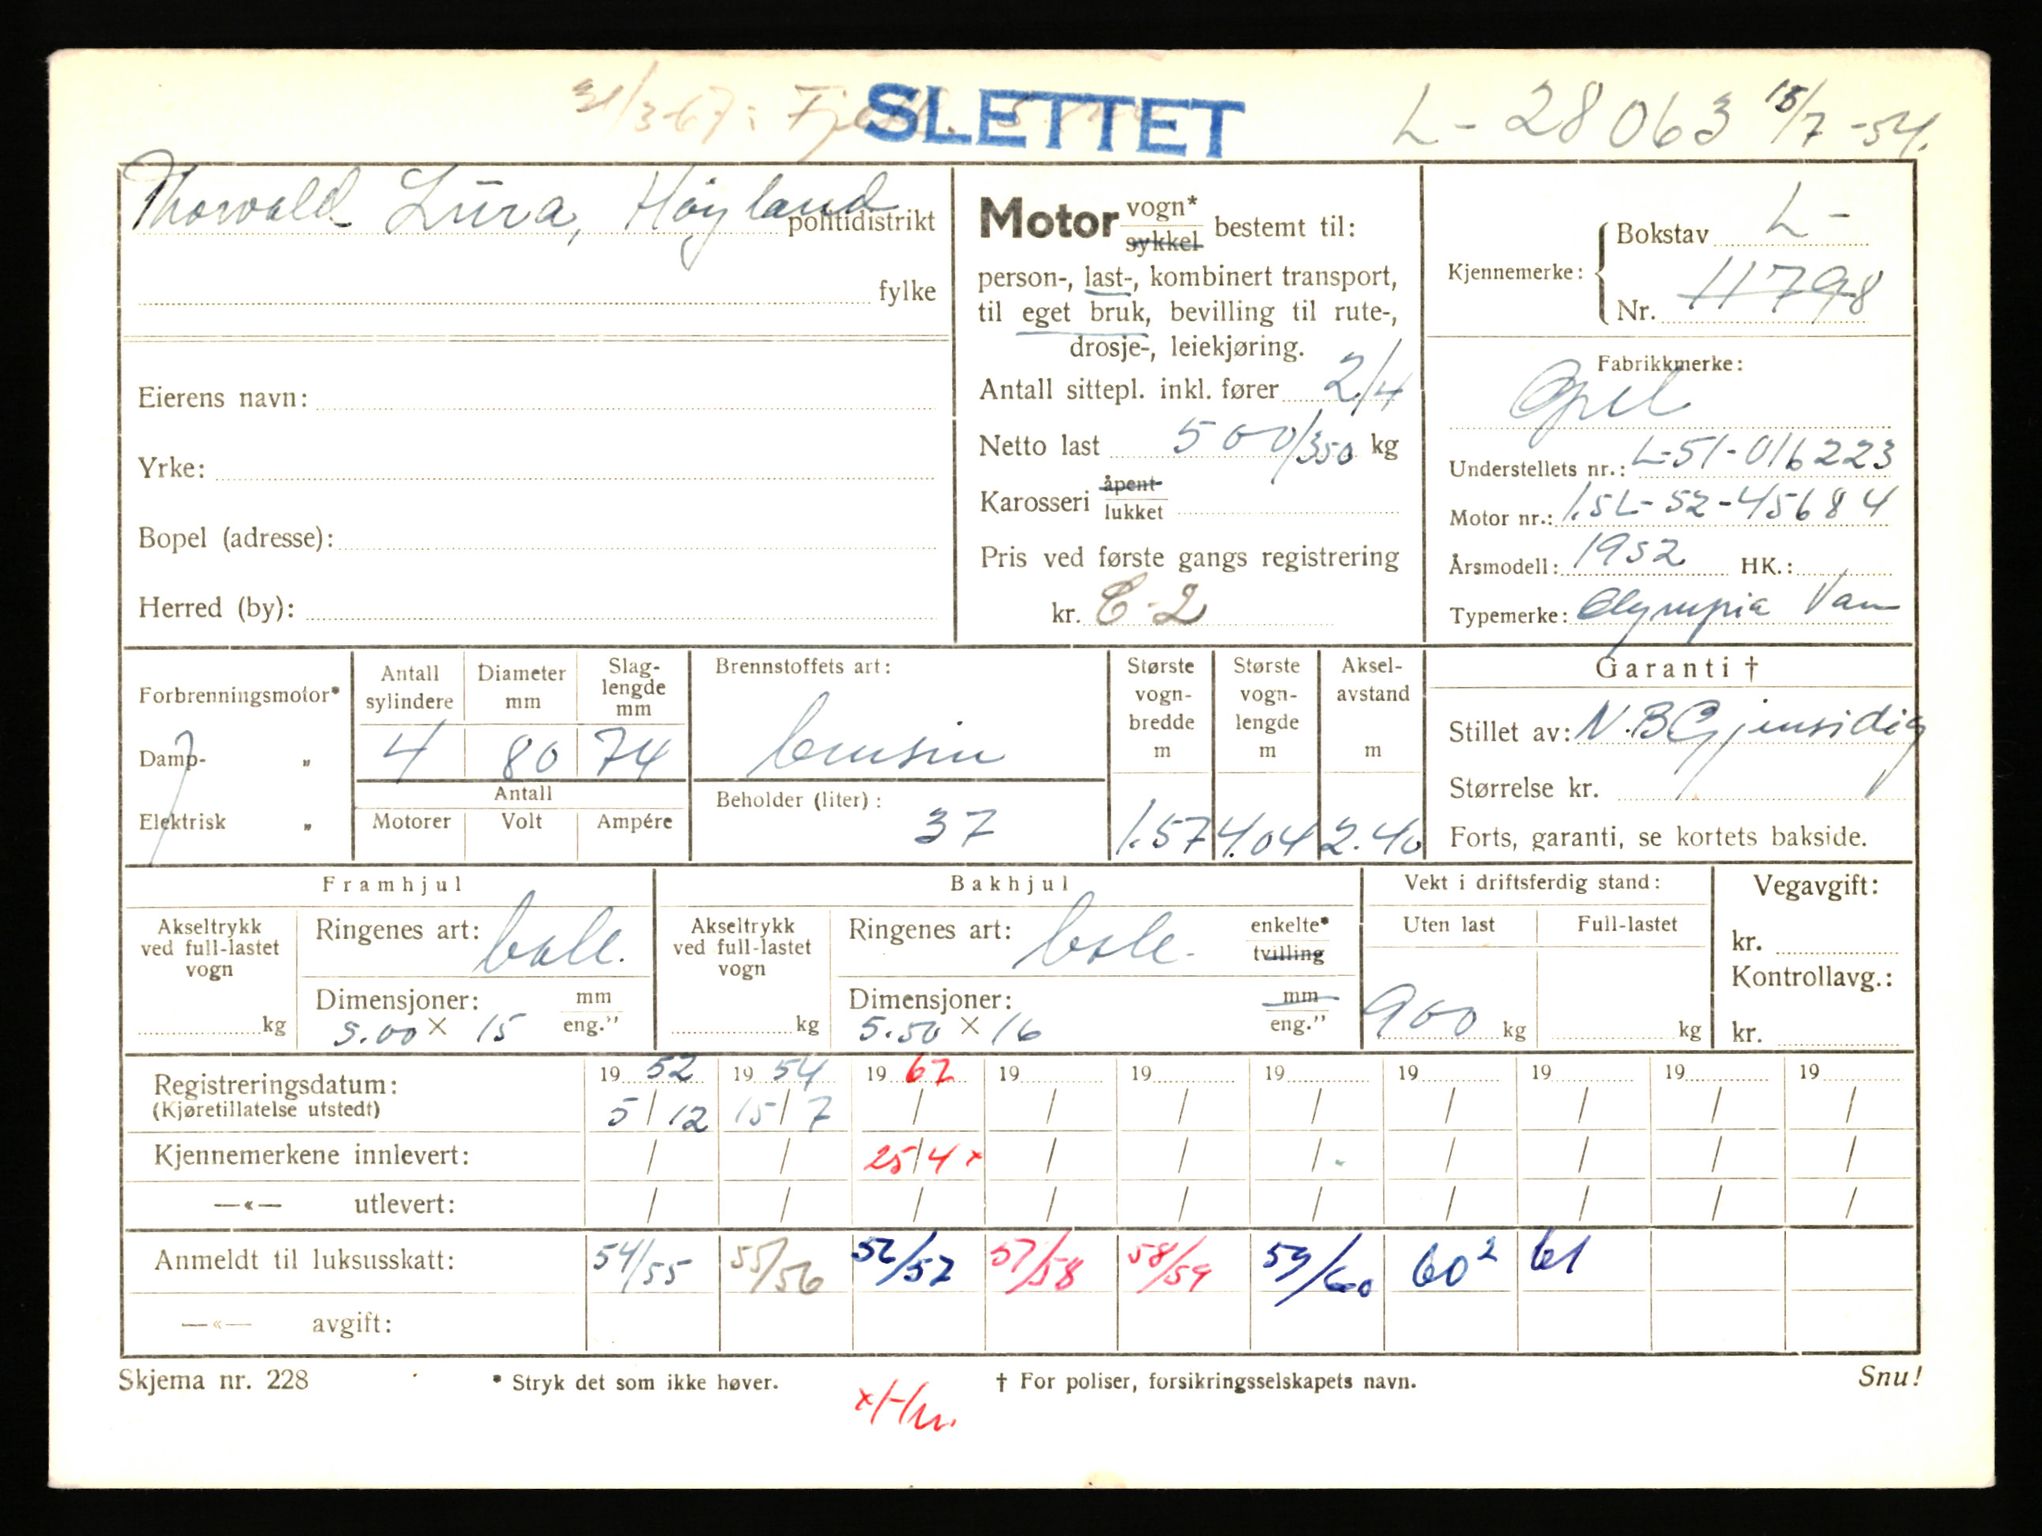 31/3-67: SLETTET L-28063 15/7-54.
Thorvald Lura, Høyland politidistrikt
fylke
Eierens navn:
Yrke:
Bopel (adresse):
Herred (by):
Motor vogn* sykkel bestemt til:
person-, last-, kombinert transport,
til eget bruk, bevilling til rute-,
drosje-, leiekjøring.
Antall sittepl. inkl. fører 2/4
Netto last 500/350 kg
Karosseri åpent lukket
Pris ved første gangs registrering
kr. C-2
Kjennemerke: Bokstav L-
Nr. 11798
Fabrikkmerke:
Opel
Understellets nr.: L-51-016223
Motor nr.: 1.5L-52-45684
Årsmodell: 1952 HK.:
Typemerke: Olympia Van
Forbrenningsmotor*
Damp- "
Elektrisk "
Antall sylindere Diameter mm Slag-lengde mm
4 80 74
Antall
Motorer Volt Ampére
Brennstoffets art:
bensin
Beholder (liter):
37
Største vogn-bredde m
1.57
Største vogn-lengde m
4.04
Aksel-avstand m
2.40
Garanti †
Stillet av: N.B Gjensidig
Størrelse kr.
Forts, garanti, se kortets bakside.
Framhjul
Akseltrykk ved full-lastet vogn
kg
Ringenes art: ball.
Dimensjoner: mm
5.00 × 15 eng."
Bakhjul
Akseltrykk ved full-lastet vogn
kg
Ringenes art: ball. enkelte* tvilling
Dimensjoner: mm
5.50 × 16 eng."
Vekt i driftsferdig stand:
Uten last Full-lastet
900 kg kg
Vegavgift:
kr.
Kontrollavg.:
kr.
Registreringsdatum: 19 52 19 54 19 67 19 19 19 19 19 19 19
(Kjøretillatelse utstedt) 5/12 15/7 / / / / / / / /
Kjennemerkene innlevert: / / 25/4 × / / / / / / /
—«— utlevert: / / / / / / / / / /
Anmeldt til luksusskatt: 54/55 55/56 56/57 57/58 58/59 59/60 60² 61
—«— avgift:
Skjema nr. 228 * Stryk det som ikke høver. † For poliser, forsikringsselskapets navn. Snu!